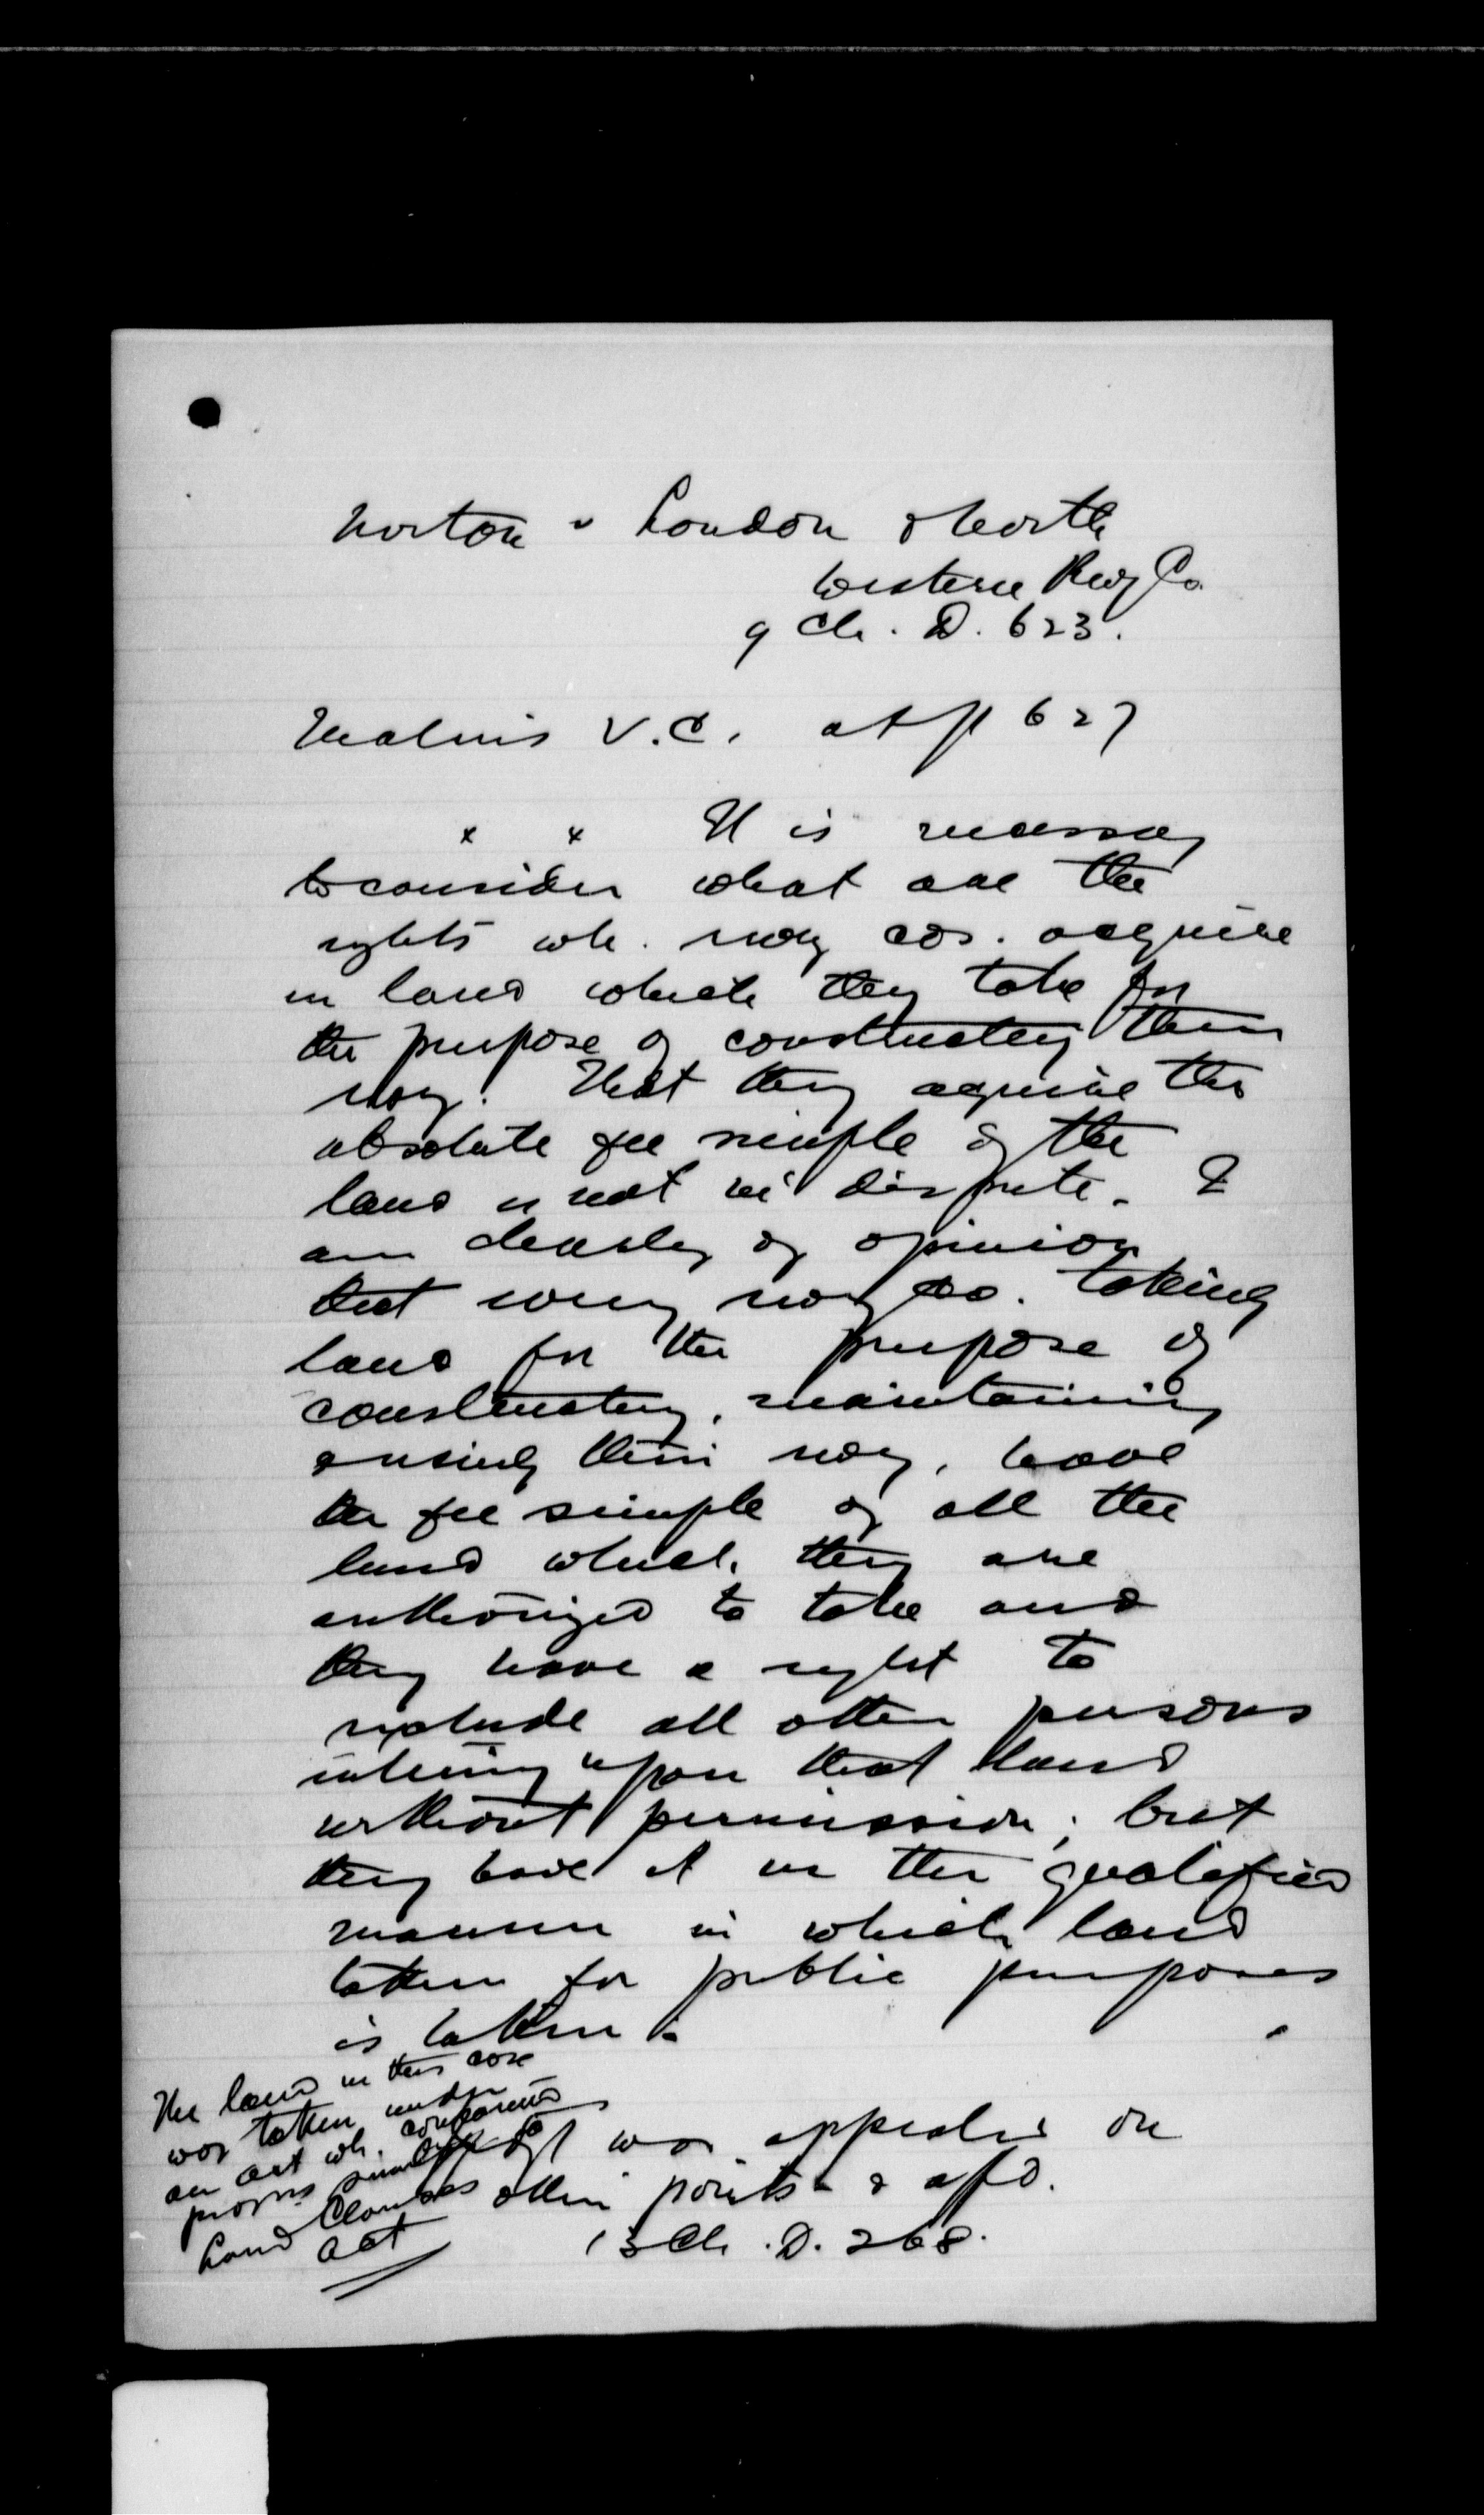 Norton v London & North
Western Rwy Co.
9 Ch. D. 623.
Malins V.C. at p 627
x x It is necessary
to consider what are the
rights wh. rwy cos. acquire
in land which they take for
the purpose of constructing their
rwy. That they acquire the
absolute fee simple of the
land is not in dispute. I
am clearly of opinion
that every rwy co. taking
land for the purpose of
constructing, maintaining
& using their rwy, have
the fee simple of all the
land which they are
authorized to take and
they have a right to
exclude all other persons
entering upon that land
without permission; but
they have it in the qualified
manner in which land
taken for public purposes
is taken.
The land in this case
was taken under
an act wh. contained
provns similar to
Land Clauses
Act
Jgt was appealed on
other points & affd.
13 Ch. D. 268.